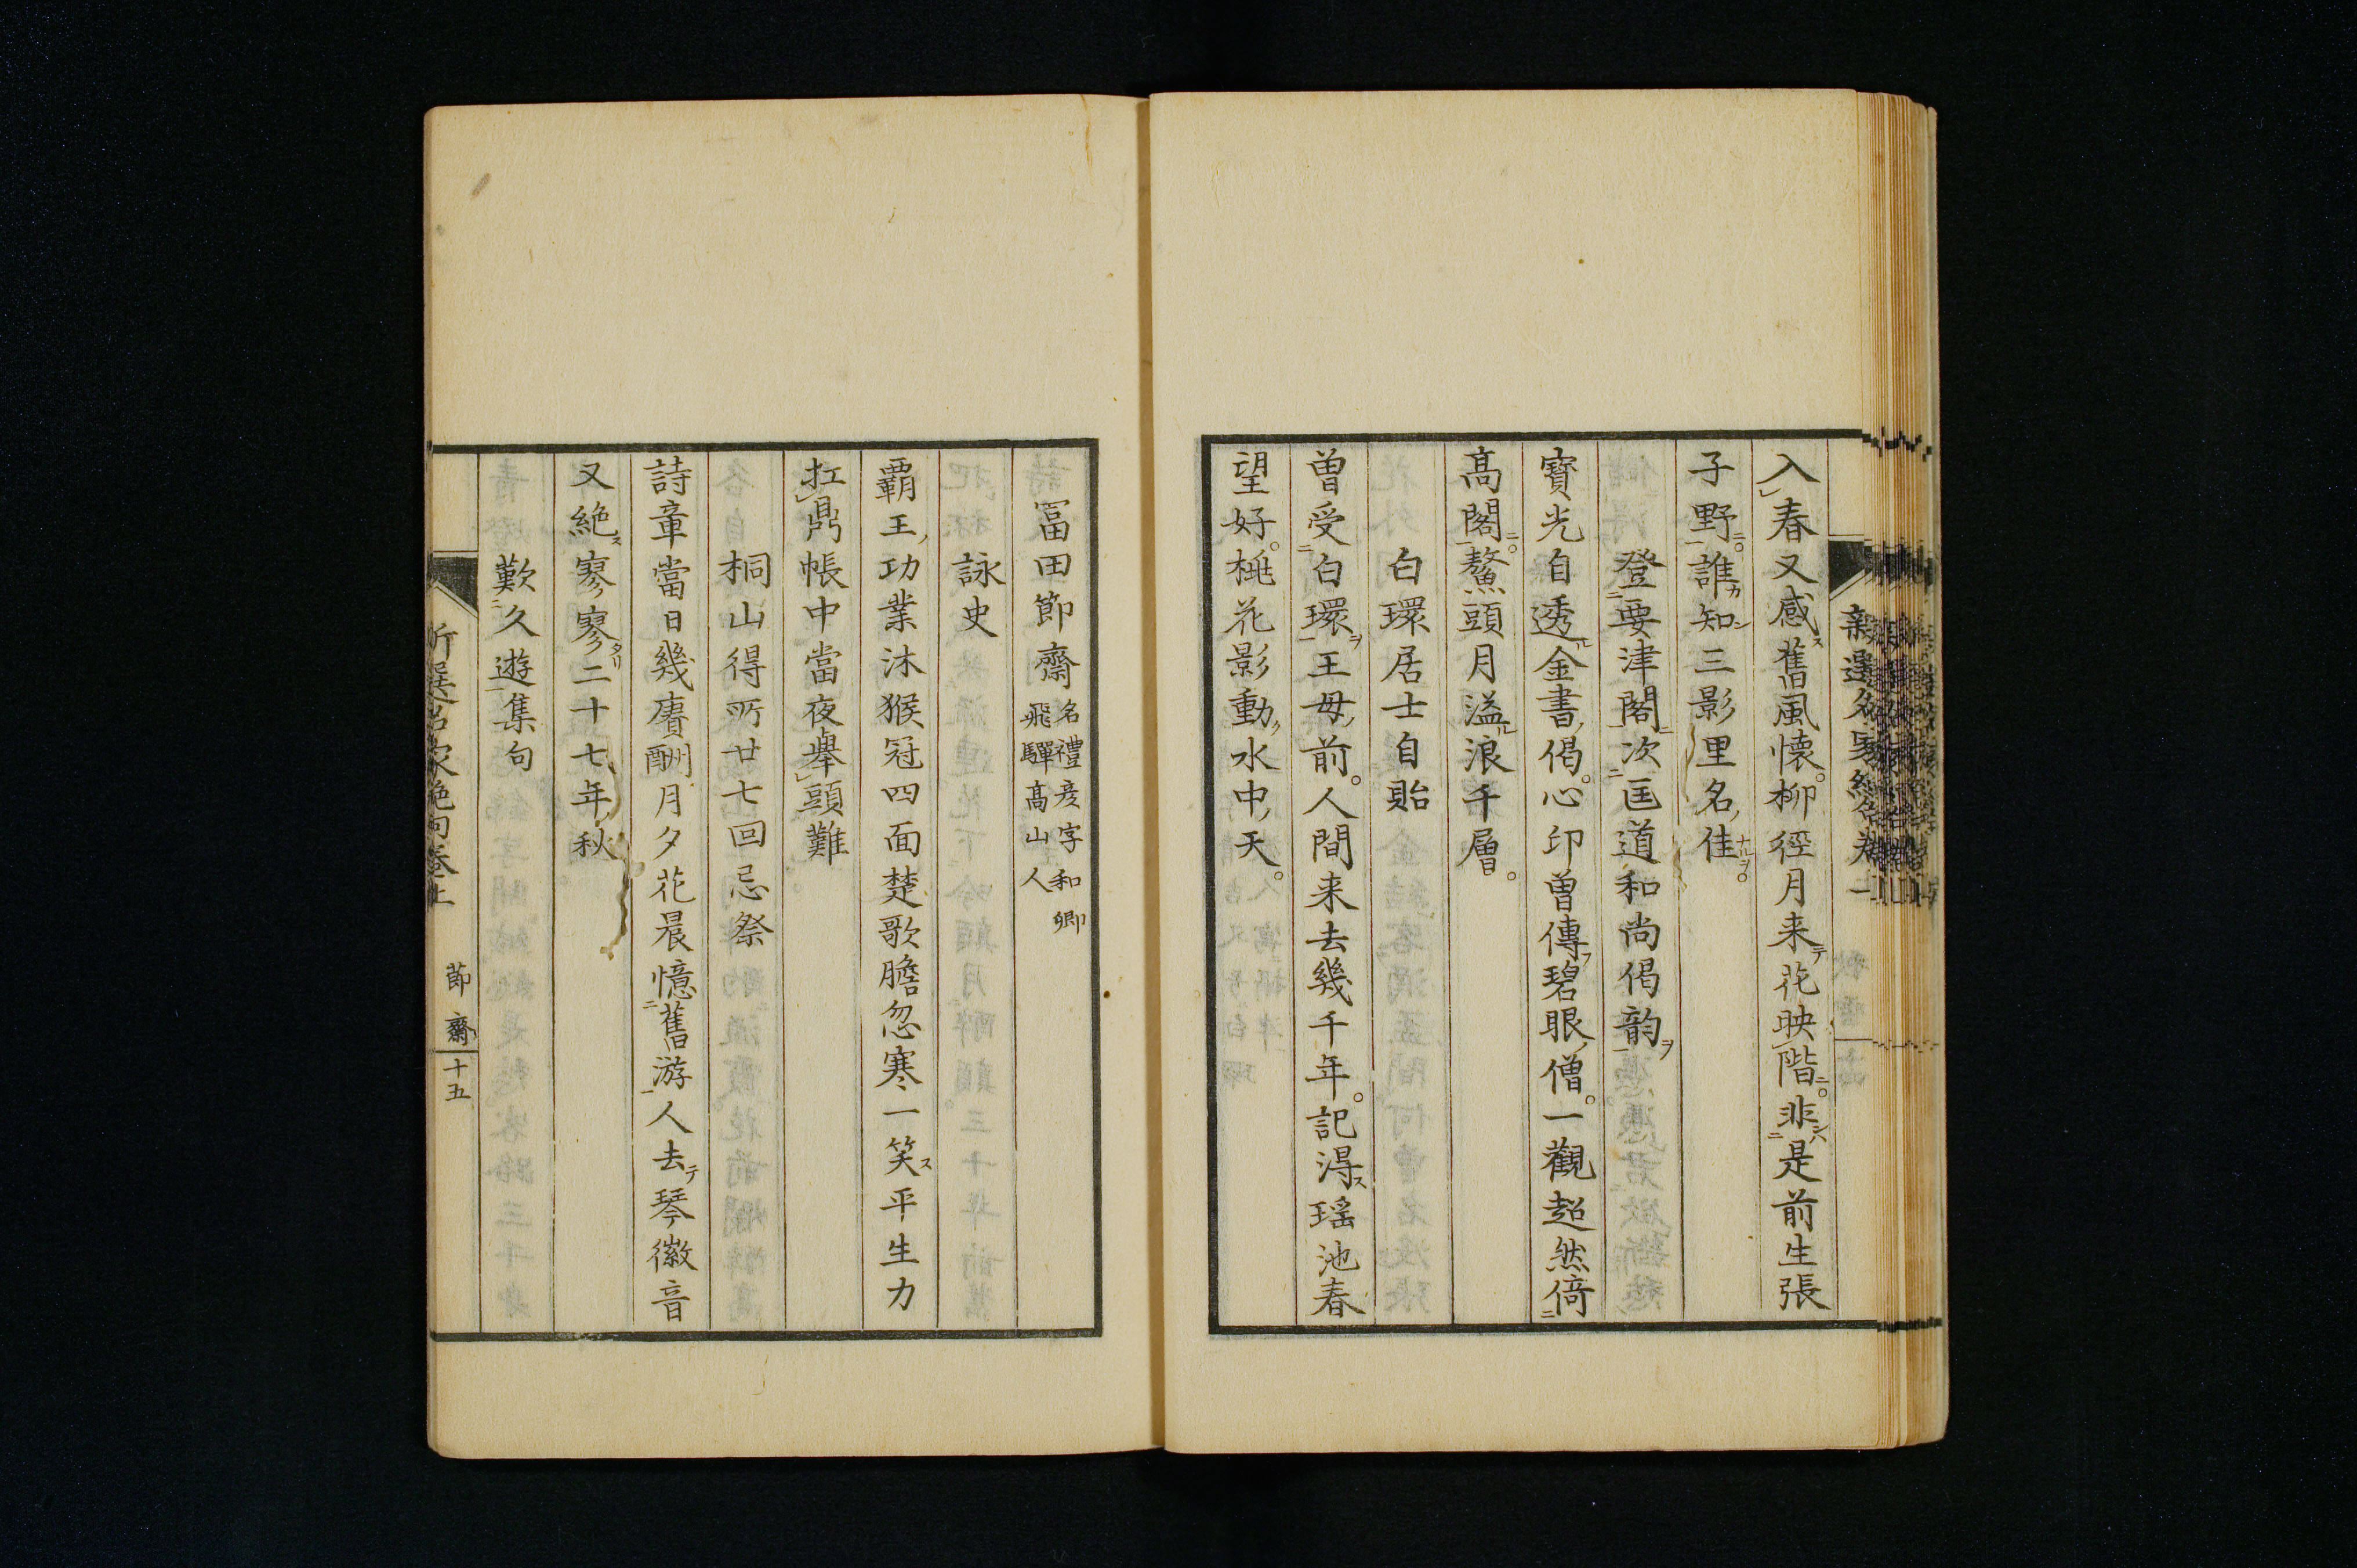 入春又感舊風懐柳徑月来花映階非是前生張
子野誰知三影里名佳
登要津閣次匡道和尚偈韵
寳光自透金書偈心印曽傳碧眼僧一觀超然倚
髙閣鰲頭月溢浪千層
白環居士自貽
曽受白環王母前人間来去幾千年記淂瑶池春
望好桃花影動水中天
冨田節齋 名禮彦字和卿
飛驒髙山人
詠史
覇王功業沐猴冠四面楚歌膽忽寒一笑平生力
扛鼎帳中當夜擧頭難
桐山得所廿七回忌祭
詩章當日幾賡酬月夕花晨憶舊游人去琴徽音
又絶寥寥二十七年秋
歎久遊集句
節齋 十五